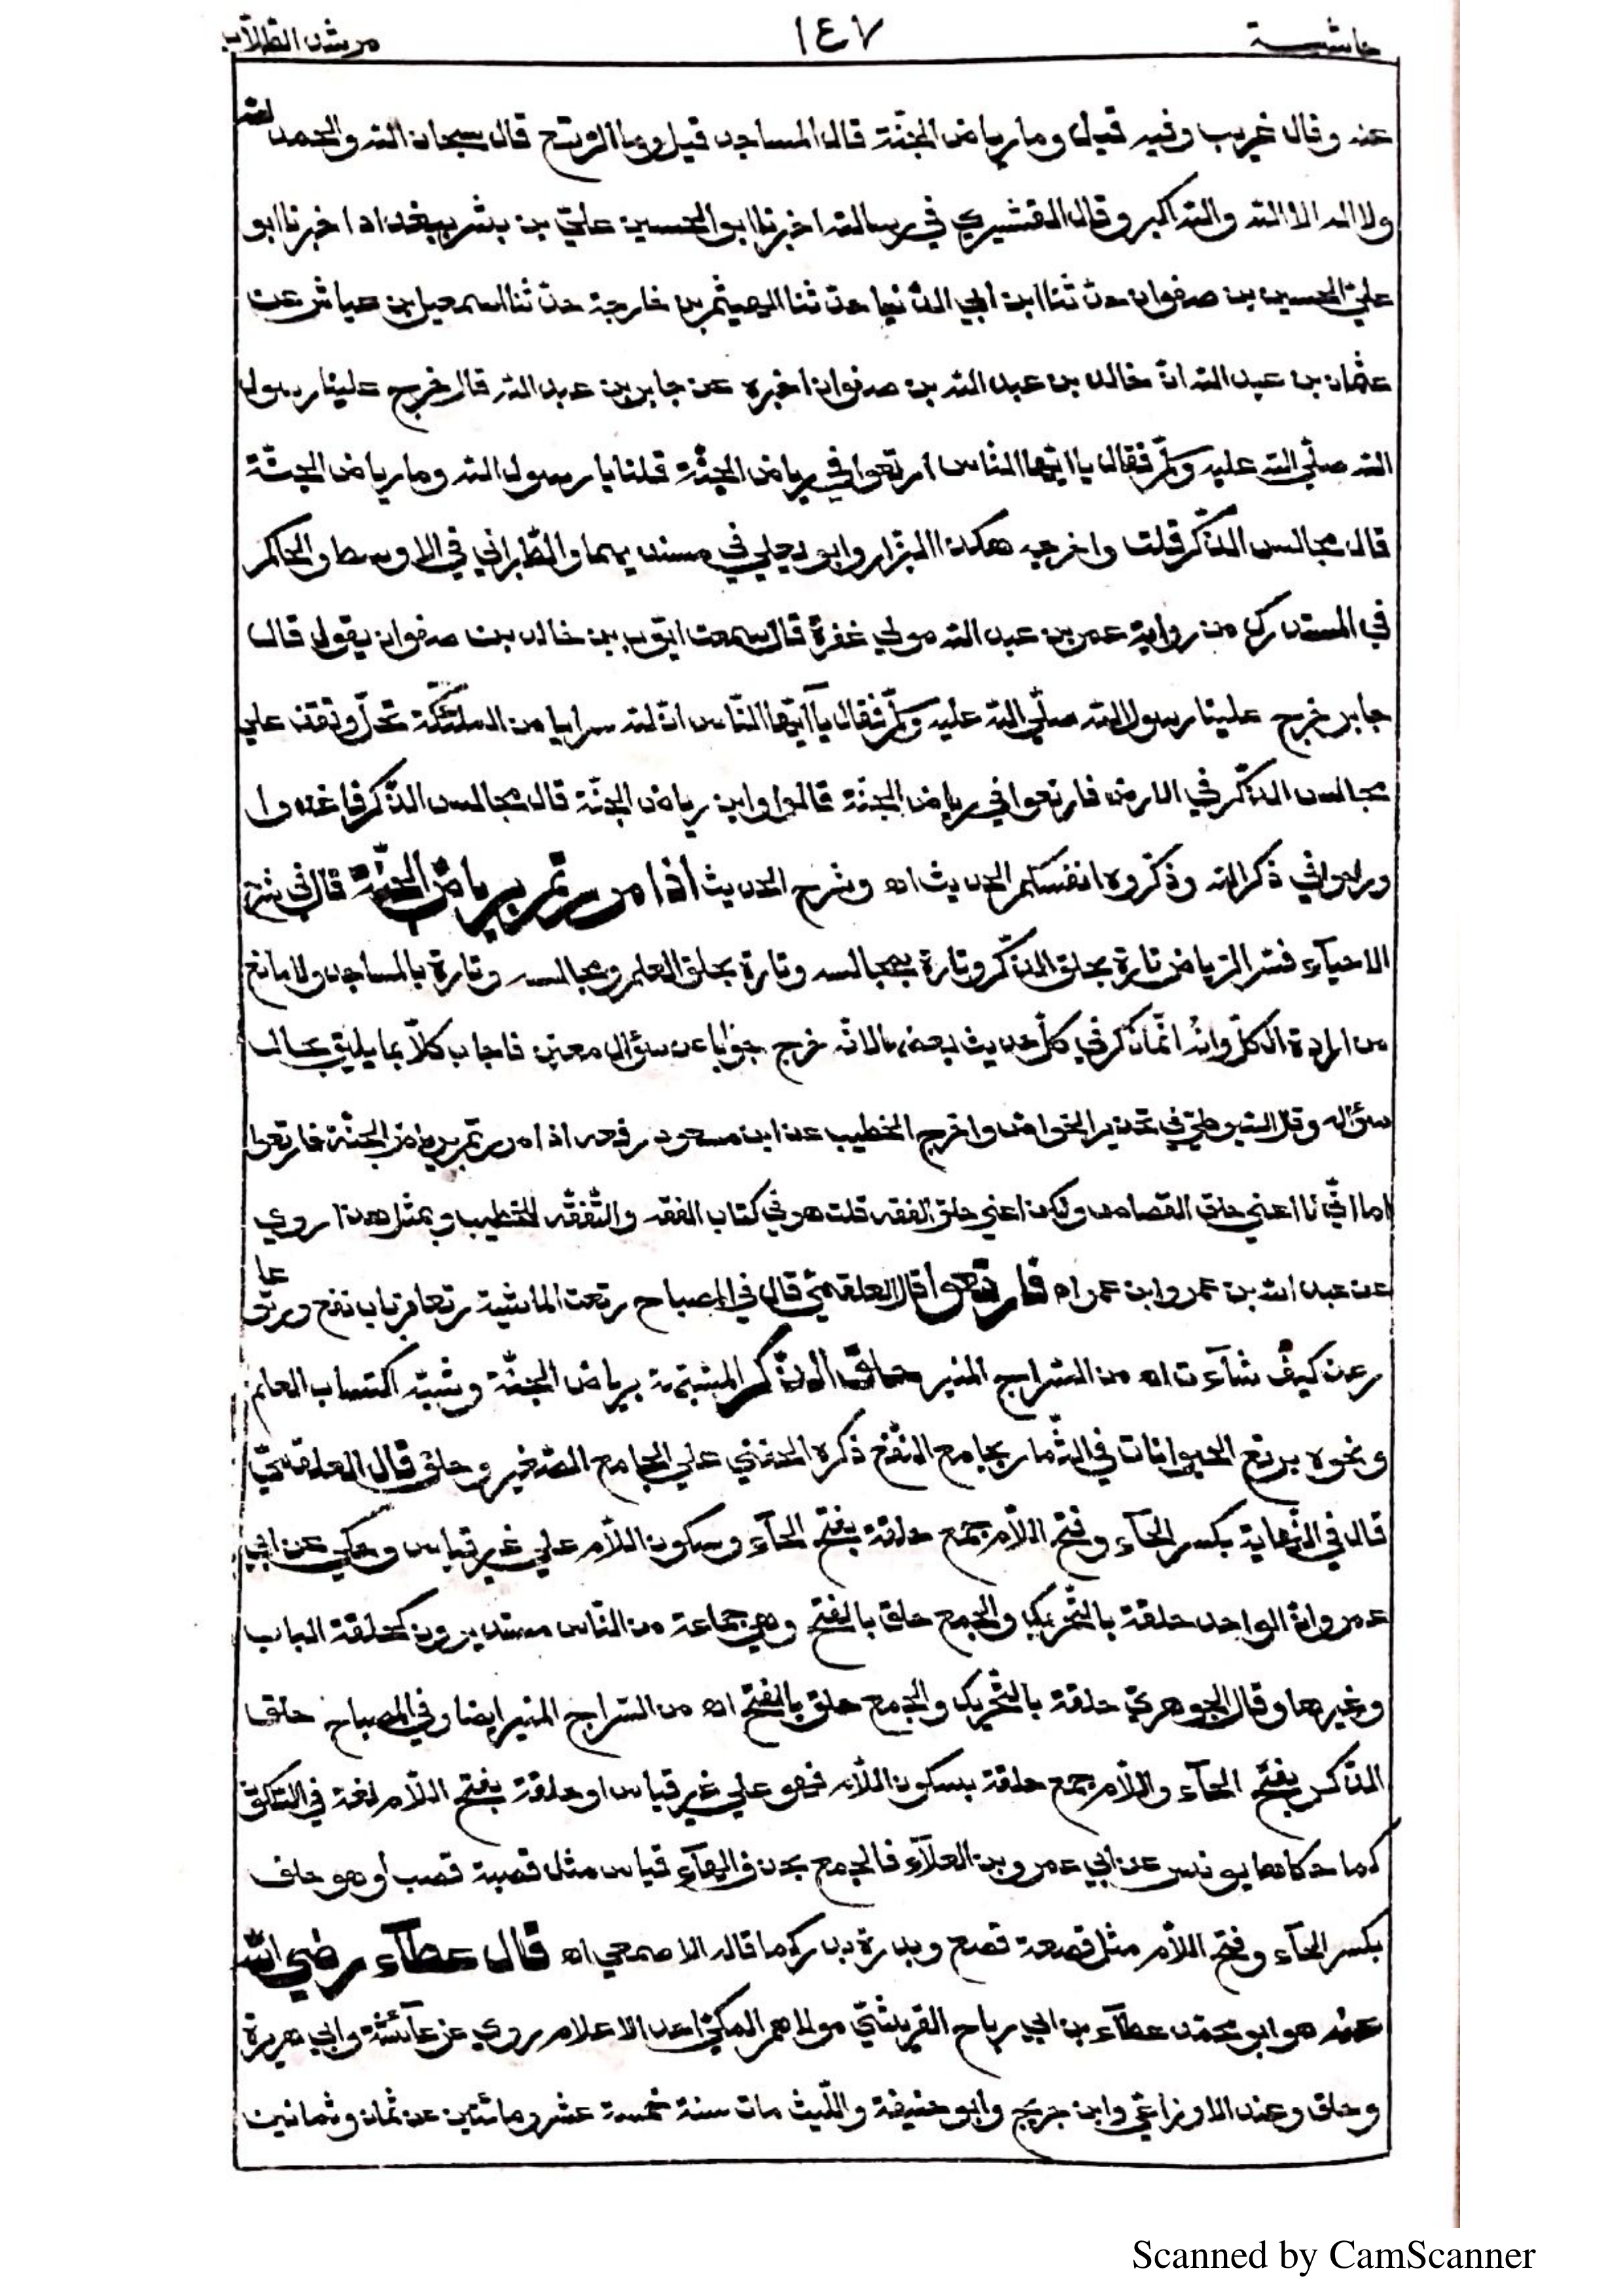 حاشية ١٤٧ مرشد الطلاب
عنه وقال غريب وفيه قيل وما رياض الجنّة قال المساجد قيل وما الرتع قال سبحان الله والحمد لله
ولا اله الا الله والله اكبر وقال القشيري في رسالته اخبرنا ابو الحسين عليّ بن بشر ببغداد اخبرنا ابو
عليّ الحسين بن صفوان حدّثنا ابن ابي الدّنيا حدّثنا الهيثم بن خارجة حدّثنا اسمعيل بن عياش عن
عثمان بن عبد الله انّ خالد بن عبد الله بن صفوان اخبره عن جابر بن عبد الله قال خرج علينا رسول
الله صلّي الله عليه وسلّم فقال يا ايّها النّاس ارتعوا في رياض الجنّة قلنا يا رسول الله وما رياض الجنّة
قال مجالس الذّكر قلت واخرجه هكذا البزّار وابو يعلي في مسنديهما والطّبراني في الاوسط والحاكم
في المستدرك من رواية عمر بن عبد الله مولي غفرة قال سمعت ايّوب بن خالد بن صفوان يقول قال
جابر خرج علينا رسول الله صلّي الله عليه وسلّم فقال يآ ايّها النّاس انّ لله سرايا من الملئكة تحلّ وتقف علي
مجالس الذّكر في الارض فارتعوا في رياض الجنّة قالوا واين رياض الجنّة قال مجالس الذّكر فاغدوا
وروحوا في ذكر الله وذكّروه انفسكم الحديث اه وشرح الحديث اذا مررتم برياض الجنّة قال في شرح
الاحيآء فسّر الرّياض تارة بحلق الذّكر وتارة بمجالسه وتارة بحلق العلم ومجالسه وتارة بالمساجد ولا مانع
من ارادة الكلّ وانّه انّما ذكر في كلّ حديث بعضها لانّه خرج جوابا عن سؤال معيّن فاجاب كلّا بما يليق بحال
سؤاله وقال السّيوطيّ في تحذير الخواصّ واخرج الخطيب عن ابن مسعود رفعه اذا مررتم برياض الجنّة فارتعوا
اما انّي لا اعني حلق القصاص ولكن اعني حلق الفقه قلت هو في كتاب الفقه والتّفقّه للخطيب وبمثل هذا روي
عن عبد الله بن عمر وابن عمرو اه فارتعوا قال العلقميّ قال في المصباح رتعت الماشية رتعا من باب نفع ورتوعا
رعت كيف شآءت اه من السّراج المنير حلق الذّكر المشبّهة برياض الجنّة وشبّه اكتساب العلم
ونحوه برتع الحيوانات في الثّمار بجامع النّفع ذكره الحفني علي الجامع الصّغير وحلق قال العلقميّ
قال في النّهاية بكسر الحآء وفتح اللّام جمع حلقة بفتح الحآء وسكون اللّام علي غير قياس وحكي عن ابي
عمرو انّ الواحد حلقة بالتّحريك والجمع حلق بالفتح وهي جماعة من النّاس مستديرون كحلقة الباب
وغيرها وقال الجوهريّ حلقة بالتّحريك والجمع حلق بالفتح اه من السّراج المنير ايضا وفي المصباح حلق
الذّكر بفتح الحآء واللّام جمع حلقة بسكون اللّام فهو علي غير قياس او حلقة بفتح اللّام لغة في السّكون
كما حكاها يونس عن ابي عمرو بن العلآء فالجمع بحذف الهآء قياس مثل قصبة قصب او هو حلق
بكسر الحآء وفتح اللّام مثل قصعة قصع وبدرة بدر كما قاله الاصمعي اه قال عطآء رضي الله
عنه هو ابو محمّد عطآء بن ابي رباح القريشيّ مولاهم المكيّ احد الاعلام روي عن عآئشة وابي هريرة
وخلق وعنه الاوزاعي وابن جريج وابو حنيفة واللّيث مات سنة خمسة عشر ومائتين عن ثمان وثمانين
Scanned by CamScanner